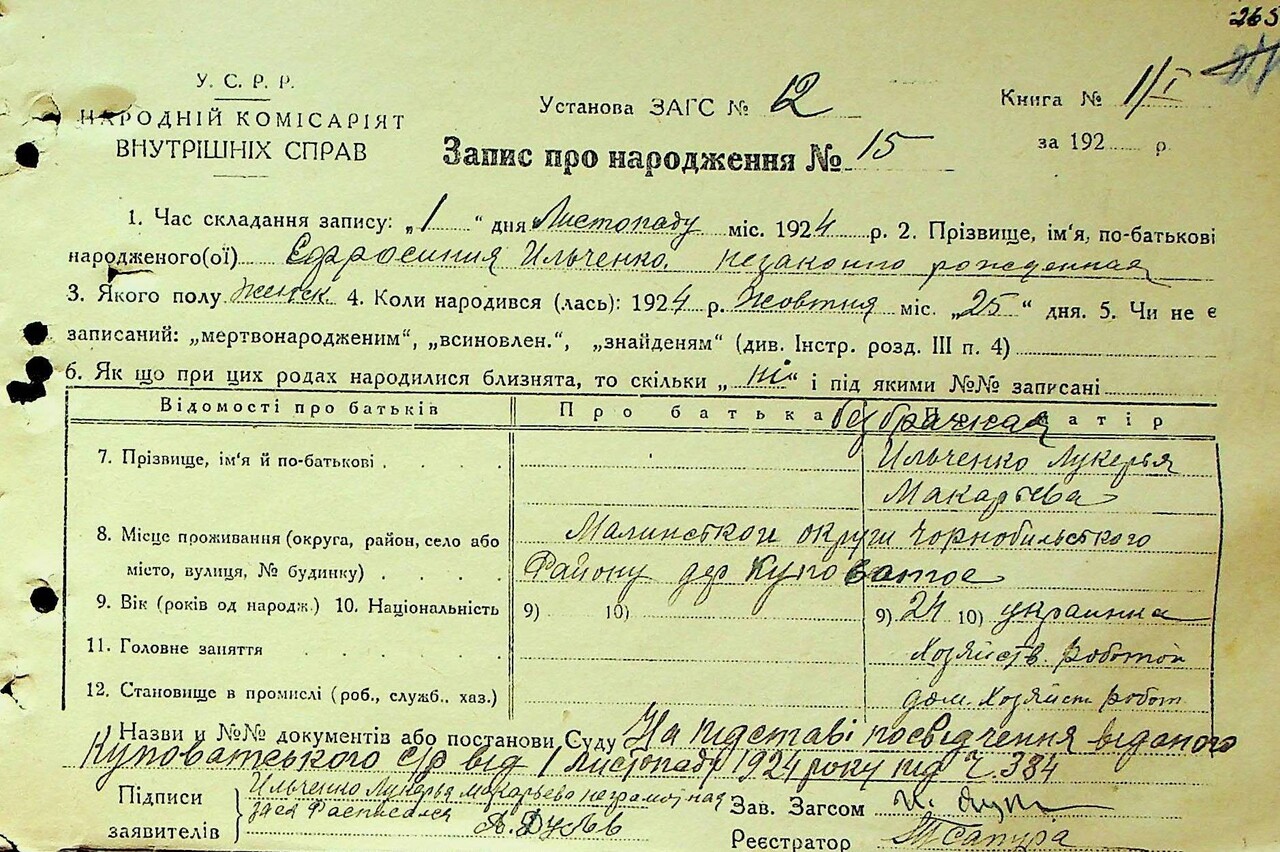 265
У. С. Р. Р.
НАРОДНІЙ КОМІСАРІЯТ
ВНУТРІШНІХ СПРАВ
Установа ЗАГС № 12
Книга № 1/I
за 192 р.
Запис про народження № 15
1. Час складання запису: „1“ дня Листопаду міс. 1924 р. 2. Прізвище, ім'я, по-батькові
народженого(ої) Ефросиния Ильченко. незаконно рожденная
3. Якого полу женск 4. Коли народився (лась): 1924 р. Жовтня міс. „25“ дня. 5. Чи не є
записаний: „мертвонародженим“, „всиновлен.“, „знайденям“ (див. Інстр. розд. III п. 4)
6. Як що при цих родах народилися близнята, то скільки „ні“ і під якими №№ записані
Відомості про батьків Про батька безбрачная Про матір
7. Прізвище, ім'я й по-батькові Ильченко Лукерья
Макарьева
8. Місце проживання (округа, район, село або Малинсткої округи Чорнобильсткого
місто, вулиця, № будинку) Району дер Куповатое
9. Вік (років од народж.) 10. Національність 9) 10) 9) 24 10) украинка
11. Головне заняття Хозяйств. роботой
12. Становище в промислі (роб., служб., хаз.) дом. Хозяйст. робот
Назви и №№ документів або постанови Суду На підставі посвідчення віданого
Куповатського с/р від 1 листопаду 1924 року під Ч. 384
Підписи Ильченко Лукерья Макарьева неграмотная Зав. Загсом
заявителів расписался Реєстратор